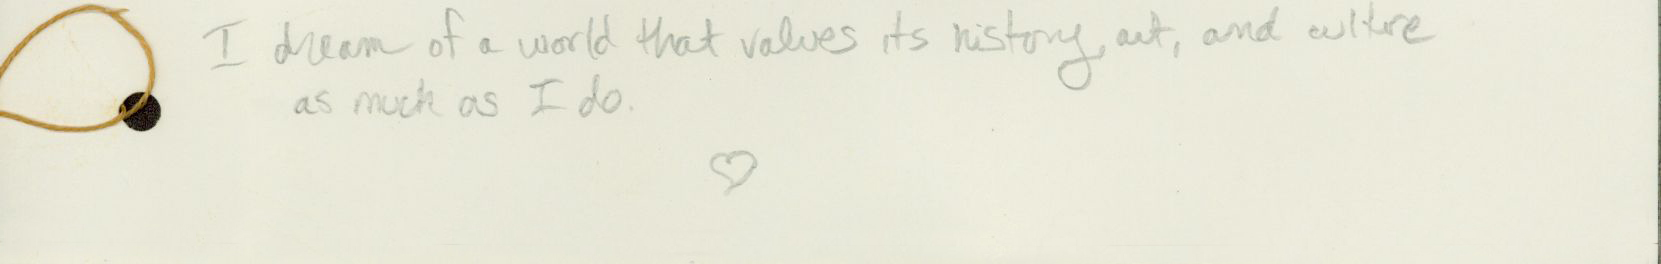 I dream of a world that values its history, art, and culture
as much as I do.